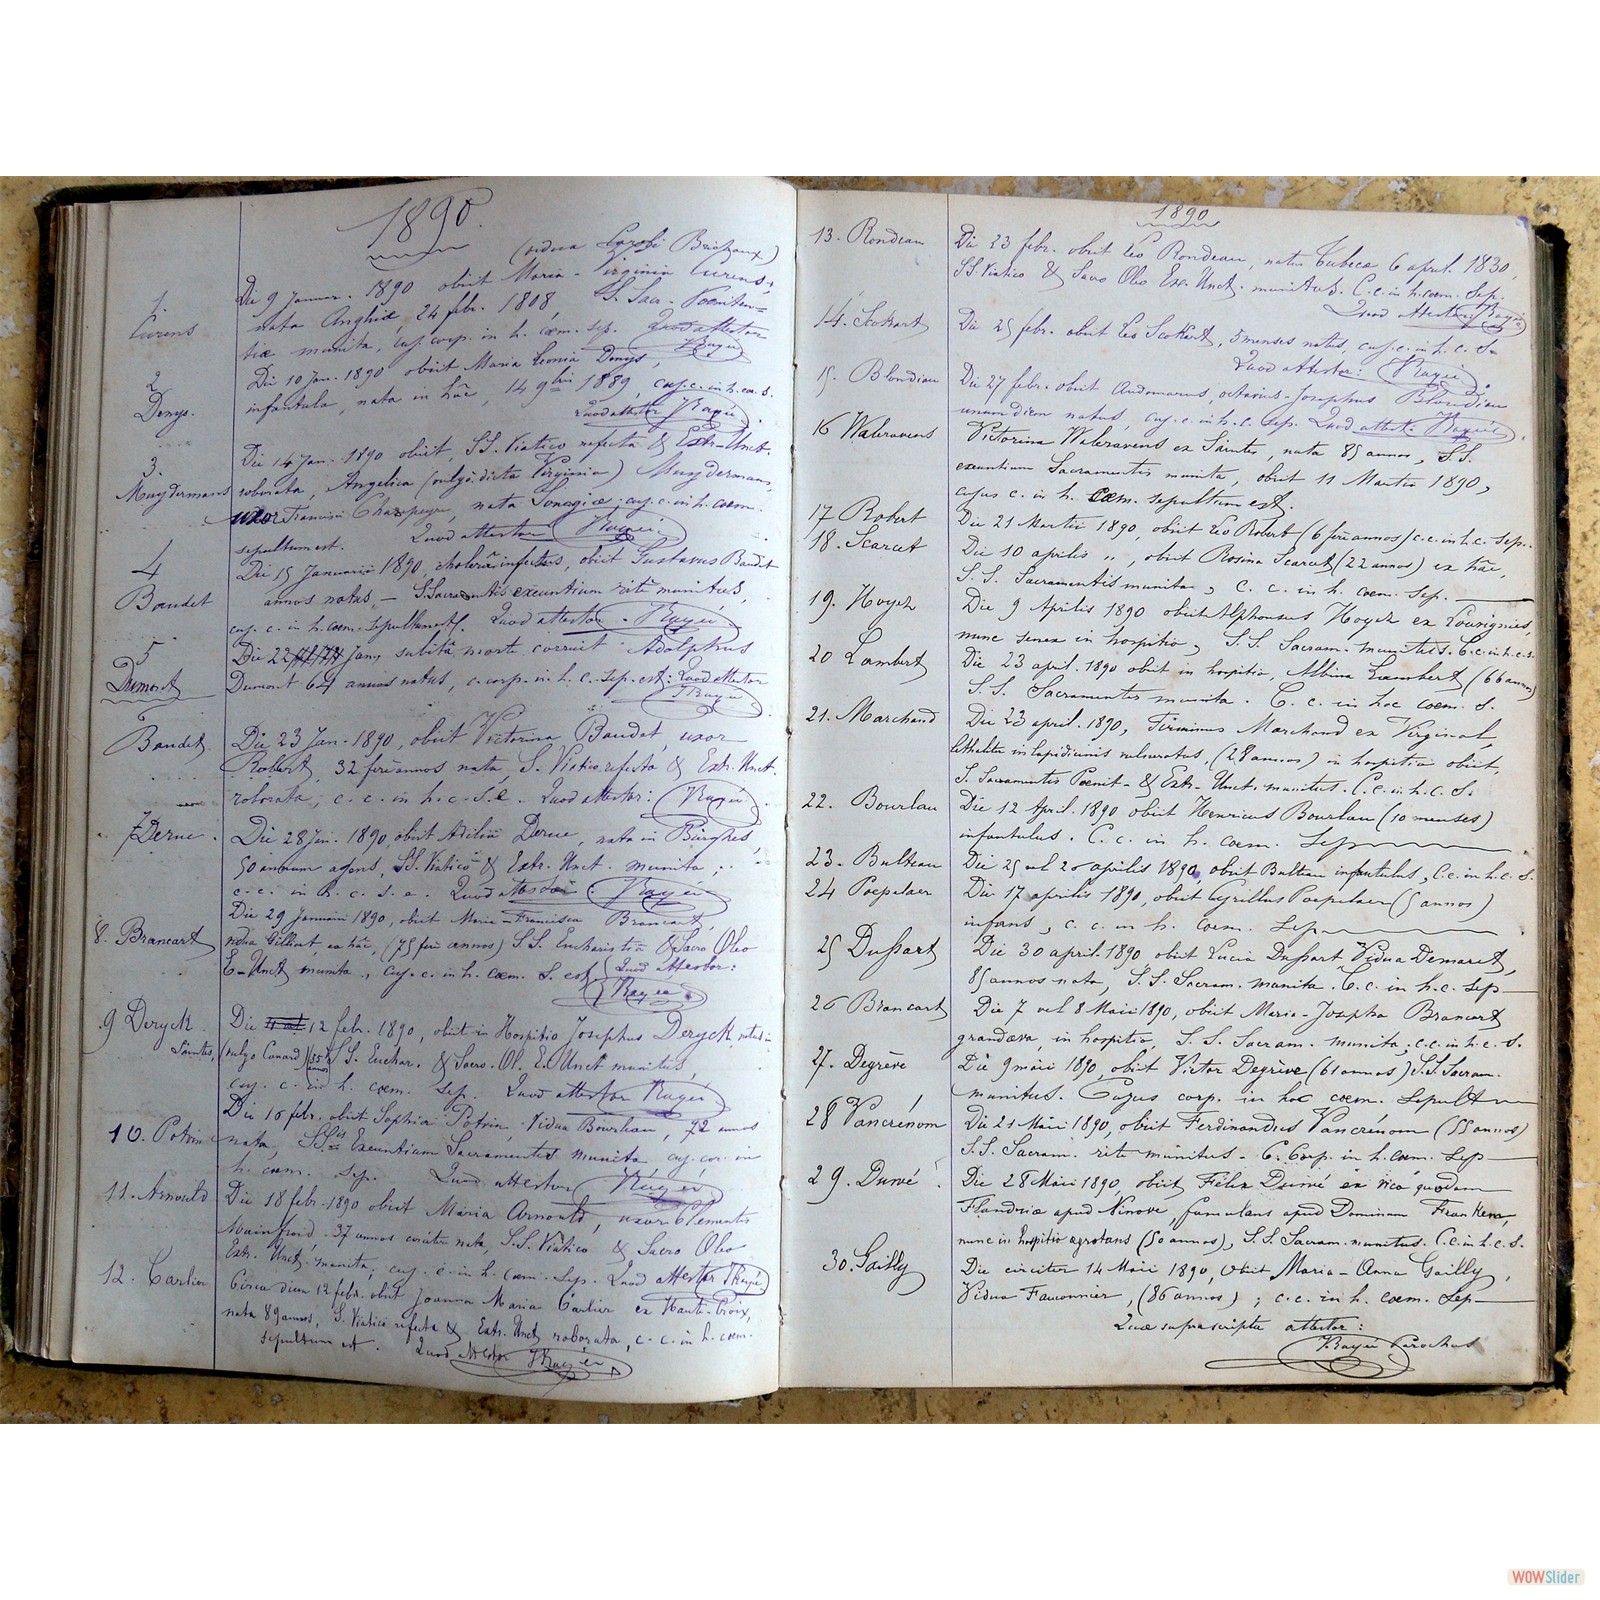 1890
(vidua Brichaux)
1. Curens
Die 9 Januar. 1890 obiit Maria-Virginia Curens,
nata Anghiæ, 24 febr. 1808, S. Sacr. Pœniten-
tiæ munita, cuj. corp. in h. cœm. sep. Quod attestor
Rayée
2. Denys.
Die 10 Jan. 1890 obiit Maria Leonia Denys,
infantula, nata in hâc, 14 9bris 1889, cuj. c. in h. cœ. s.
Quod attestor Rayée
3. Muydermans
Die 14 Jan. 1890 obiit, SS. Viatico refecta & Extr. Unct.
roborata, Angelica (vulgo dicta Virginia) Muydermans,
uxor Francisci, nata Sonegiæ; cuj. c. in h. cœm.
sepultum est. Quod attestor Rayée
4 Baudet
Die 15 Januarii 1890, obiit Gustavus Baudet
annos natus, S. Sacramentis exeuntium rite munitus,
cuj. c. in h. cœm. sepultum est. Quod attestor. Rayée
5 Dumont
Die 22 Jan. subitâ morte corruit Adolphus
Dumont 64 annos natus, c. corp. in h. c. sep. est: Quod attestor
Rayée
6 Baudet
Die 23 Jan. 1890, obiit Victorina Baudet, uxor
Robert, 32 ferè annos nata, S. Viatico refecta & Extr. Unct.
roborata, c. c. in h. c. s. e. Quod attestor: Rayée
7 Derue.
Die 28 Jan. 1890, obiit Derue, nata in Burghes,
50 annum agens, SS. Viatico & Extr. Unct. munita;
c. c. in h. c. s. e. Quod attestor: Rayée
8. Brancart
Die 29 Januarii 1890, obiit Maria-Francisca Brancart,
vidua Gilbert, ex hâc, (75 ferè annos) S.S. Eucharistiâ & Sacro Oleo
E-Unct munita, cuj. c. in h. cœm. S. est Quod attestor:
Rayée
9 Deryck
Die 12 febr. 1890, obiit in Hospitio Josephus Deryck, natus in
Saintes, (vulgo Canard) (55 annos) S.S. Euchar. & Sacro. Ol. E. Unct munitus,
cuj. c. in h. cœm. sep. Quod attestor Rayée
10. Potvin
Die 16 febr. obiit Sophia Potvin, Vidua Bourleau, 72 annos
nata, SSis Exeuntium Sacramentis munita cuj. cor. in
h. cœm. sep. Quod attestor Rayée
11. Arnould
Die 18 febr. 1890 obiit Maria Arnould, uxor Clementis
Mainfroid. 37 annos circiter nata, S.S. Viatico & Sacro Oleo
Extr. Unct. munita, cuj. c. in h. Cœm. Sep. Quod attestor Rayée
12. Carlier
Circa diem 12 febr. obiit Joanna Maria Carlier ex Haute-Croix,
nata 89 annos, S. Viatico refecta & Extr. Unct roborata, c. c. in h. cœm.
sepultum est. Quod attestor Rayée
1890
13. Rondeau
Die 23 febr. obiit Leo Rondeau, natus Tubecæ 6 april. 1830,
SS. Viatico & Sacro Oleo Ex. Unct. munitus. C. c. in h. cœm. Sep.
Quod attestor Rayée
14. Scokart
Die 25 febr. obiit Leo Scokart, 5 menses natus, cuj. c. in h. c. S.
Quod attestor: Rayée
15. Blondiau
Die 27 febr. obiit Audomarus, octavius-Josephus Blondiau
unum diem natus, cuj. c. in h. c. sep. Quod attest: Rayée
16 Walravens
Victorina Walravens ex Saintes, nata 85 annos, S.S.
exeuntium Sacramentis munita, obiit 11 Martii 1890,
cujus c. in h. Cœm. sepultum est.
17 Robert
Die 21 Martii 1890, obiit Leo Robert (6 ferè annos) c. c. in h. c. Sep.
18. Scarcet
Die 10 aprilis ,, , obiit Rosina Scarcet (22 annos) ex hâc,
S.S. Sacramentis munita, c. c. in h. cœm. Sep.
19. Hoyez
Die 9 Aprilis 1890 obiit Alphonsus Hoyez ex Louvignies,
nunc senex in hospitio, S.S. Sacram. munitus. C. c. in h. c. s.
20 Lambert
Die 23 april. 1890 obiit in hospitio, Albina Lambert (66 annos)
S.S. Sacramentis munita. C. c. in hoc cœm. S.
21. Marchand
Die 23 april. 1890, Firminus Marchand ex Virginal,
lethaliter in lapidicinis vulneratus, (28 annos) in hospitio obiit,
S. Sacramentis Pœnit. & Extr. Unct. munitus. C. c. in h. c. S.
22. Bourlau
Die 12 April. 1890 obiit Henricus Bourlau (10 menses)
infantulus. C. c. in h. cœm. Sep
23. Bulteau
Die 25 vel 26 aprilis 1890, obiit Bulteau infantulus, C. c. in h. c. S.
24 Poepelaer
Die 17 aprilis 1890, obiit Cyrillus Poepelaer (5 annos)
infans, c. c. in h. cœm. Sep
25 Dussart
Die 30 april. 1890 obiit Lucia Dussart Vidua Demaret,
85 annos nata, S.S. Sacram. munita. C. c. in h. c. Sep
26 Brancart
Die 7 vel 8 Maii 1890, obiit Maria-Josepha Brancart
grandæva, in hospitio, S.S. Sacram. munita, c. c. in h. c. S.
27. Degrève
Die 9 maii 1890, obiit Victor Degrève (61 annos) S.S. Sacram.
munitus. Cujus corp. in hoc cœm. Sepult
28 Vancrénom
Die 21 Maii 1890, obiit Ferdinandus Vancrénom (55 annos)
S.S. Sacram. rite munitus. C. Corp. in h. cœm. Sep
29. Duwé
Die 28 Maii 1890, obiit Félix Duwé ex vico quodam
Flandriæ apud Ninove, famulans apud Dominum Franken,
nunc in hospitio ægrotans (50 annos), S.S. Sacram. munitus. C. c. in h. c. S.
30. Gailly
Die circiter 14 Maii 1890, Obiit Maria-Anna Gailly,
Vidua Fauconnier, (86 annos); c. c. in h. cœm. Sep
Quæ suprascripta attestor:
Rayée Parochus
WOWSlider